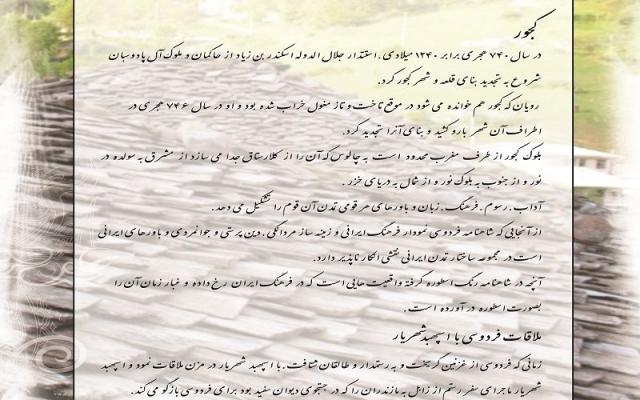 کجور
در سال ۷۴۰ هجری برابر ۱۳۴۰ میلادی. استندار جلال الدوله اسکندر بن زیاد از حاکمان و ملوک آل پادوسبان
شروع به تجدید بنای قلعه و شهر کجور کرد.
رویان که کجور هم خوانده می شود در موقع تاخت و تاز مغول خراب شده بود و او در سال ۷۴۶ هجری در
اطراف آن شهر بارو کشید و بنای آنرا تجدید کرد.
بلوک کجور از طرف مغرب محدود است به چالوس که آن را از کلارستاق جدا می سازد از مشرق به سولده در
نور و از جنوب به بلوک نور و از شمال به دریای خزر.
آداب. رسوم. فرهنگ. زبان و باورهای هر قومی تمدن آن قوم را تشکیل می دهد.
از آنجایی که شاهنامه فردوسی نمودار فرهنگ ایرانی و زمینه ساز مردانگی. دین پرستی و جوانمردی و باورهای ایرانی
است در مجموعه ساختار تمدن ایرانی نقشی انکار ناپذیر دارد.
آنچه در شاهنامه رنگ اسطوره گرفته واقعیت هایی است که در فرهنگ ایران رخ داده و غبار زمان آن را
بصورت اسطوره در آورده است.
ملاقات فردوسی با اسپهبد شهریار
زمانی که فردوسی از غزنین گریخت و به رستمدار و طالقان شتافت. با اسپهبد شهریار در مزن ملاقات نمود و اسپهبد
شهریار ماجرای سفر رستم از زابل به مازندران را که در جستجوی دیوان سفید بود برای فردوسی بازگو می کند.